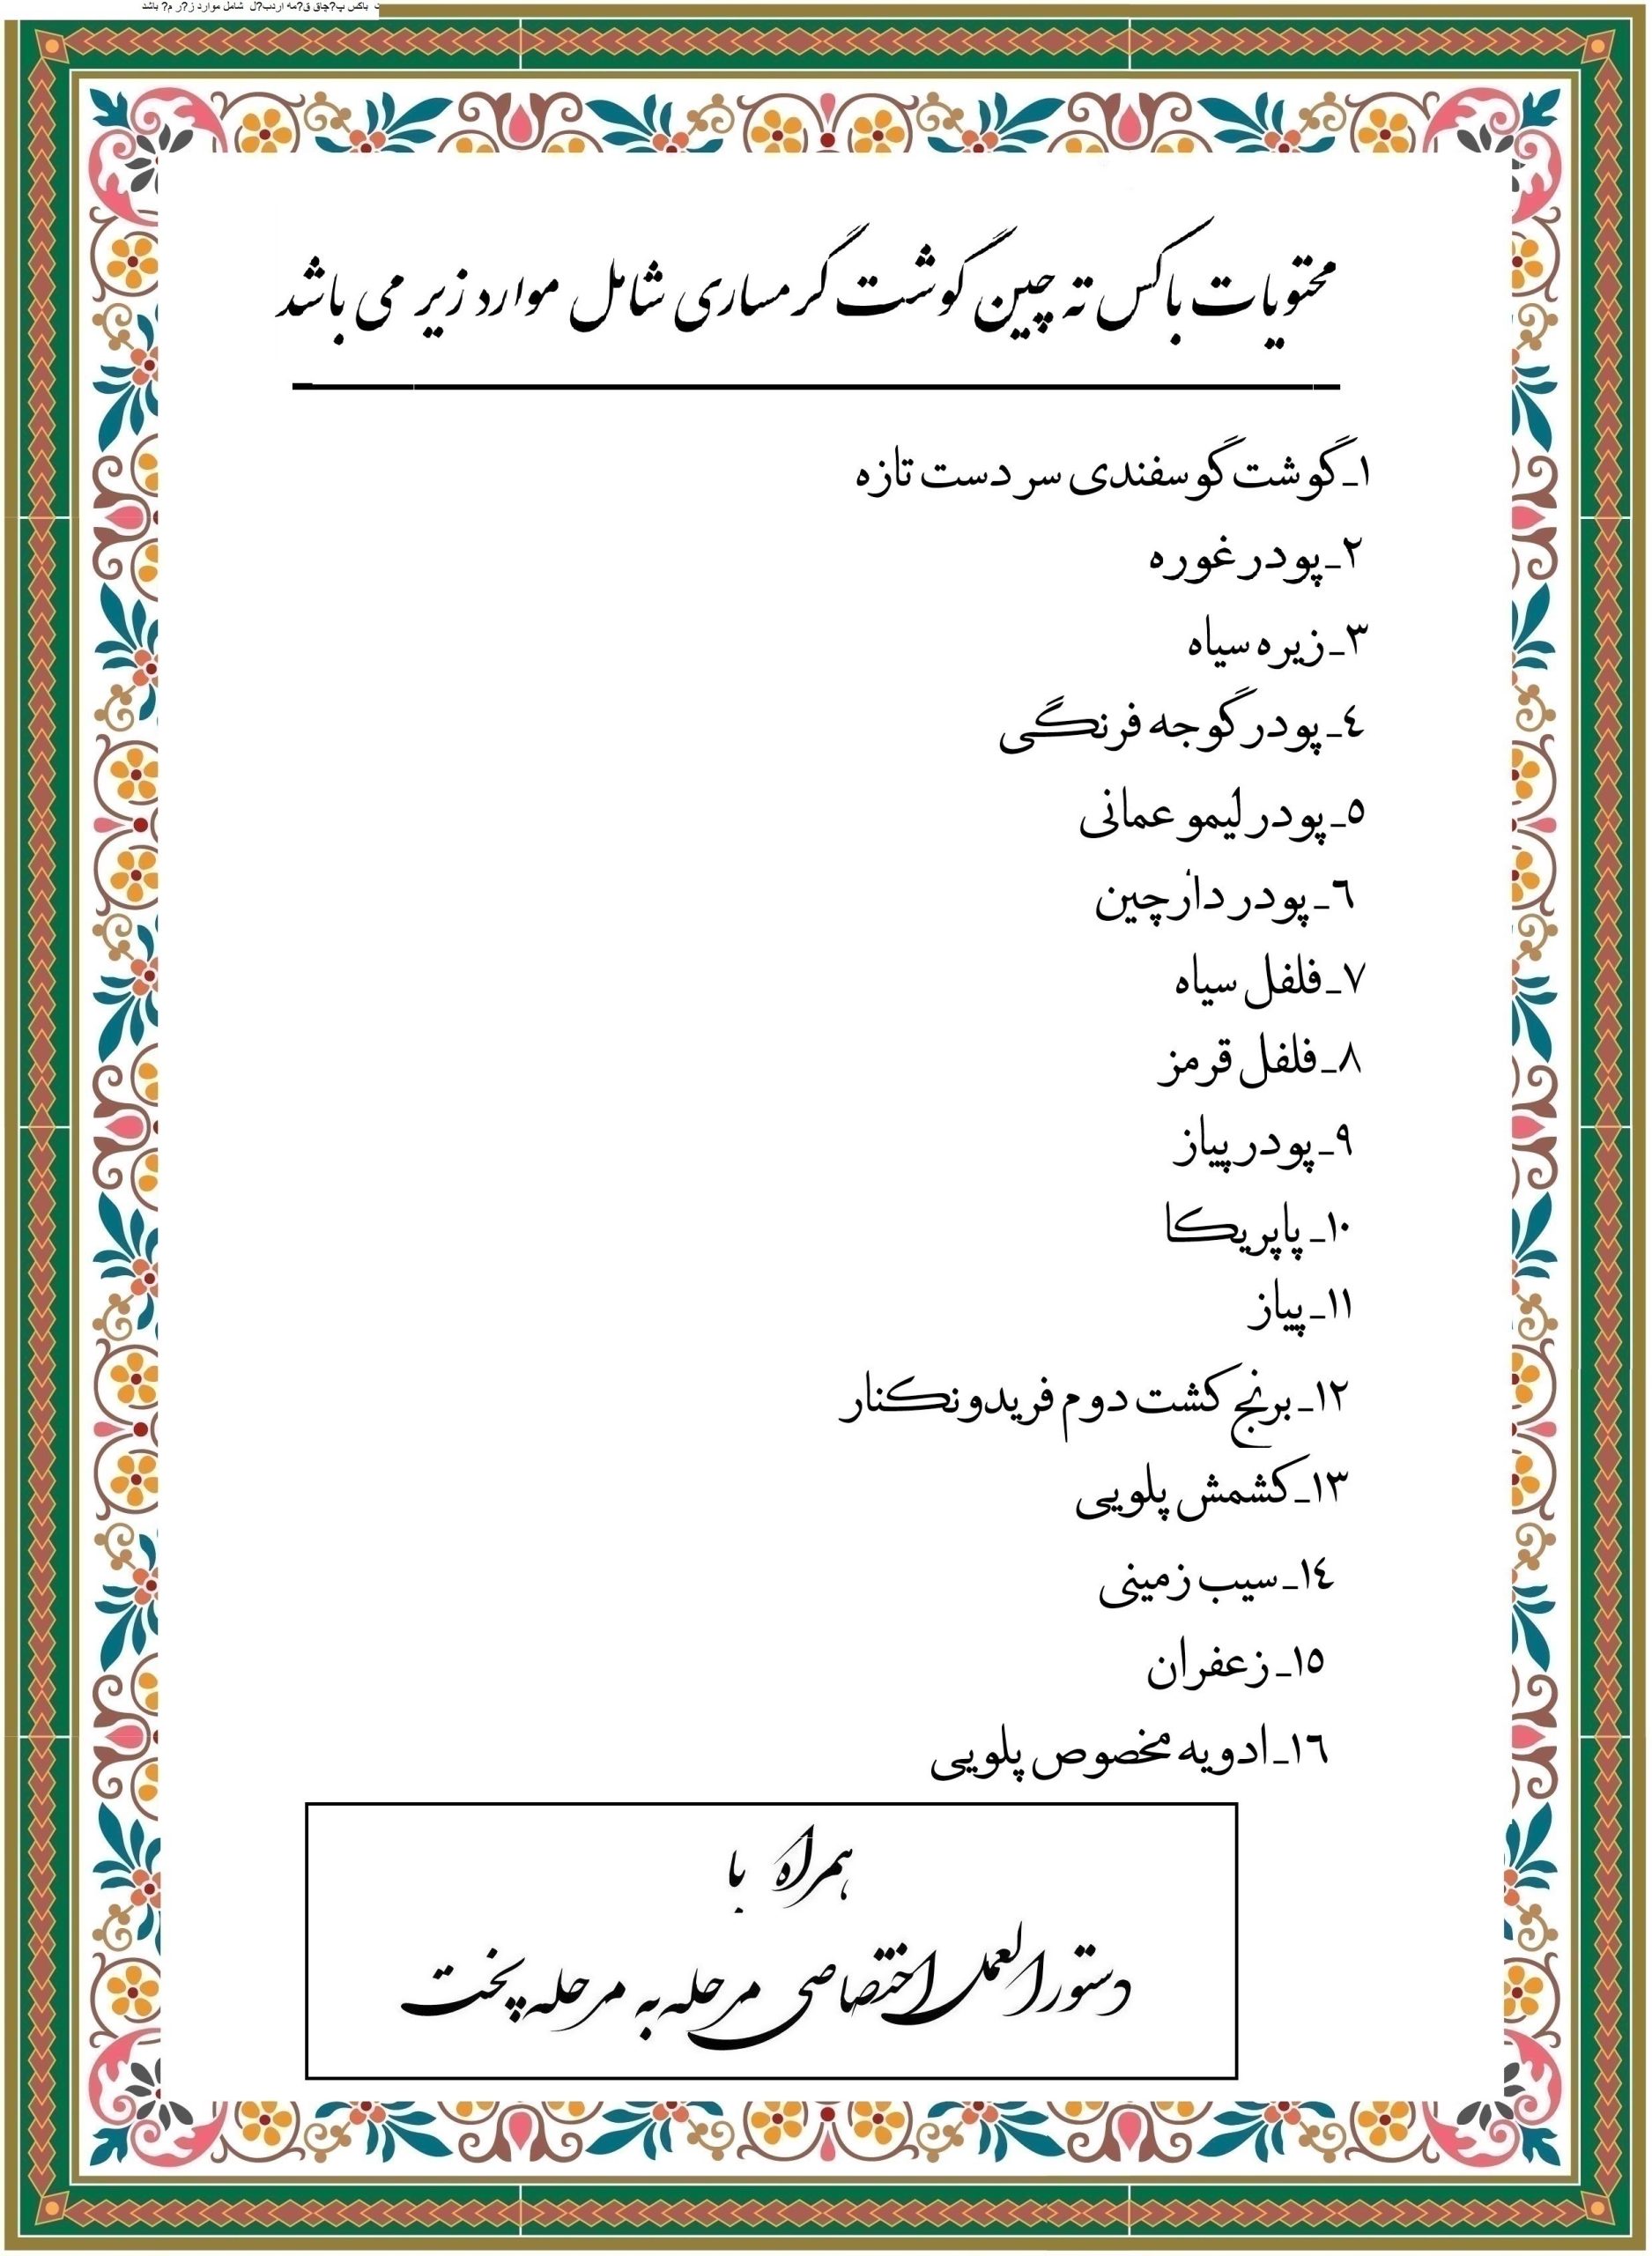 باکس پ?چاق ق?مه اردب?ل شامل موارد ز?ر م? باشد
محتویات باکس ته چین گوشت گرمساری شامل موارد زیر می باشد
۱ـگوشت گوسفندی سر دست تازه
۲ـپودر غوره
۳ـزیره سیاه
٤ـپودر گوجه فرنگی
٥ـپودر لیمو عمانی
٦ـپودر دارچین
۷ـفلفل سیاه
۸ـفلفل قرمز
۹ـپودر پیاز
۱۰ـ پاپریکا
۱۱ـپیاز
۱۲ـ برنج کشت دوم فریدونکنار
۱۳ـکشمش پلویی
۱٤ـسیب زمینی
۱٥ـ زعفران
۱٦ـادویه مخصوص پلویی
همراه با
دستورالعمل اختصاصی مرحله به مرحله پخت